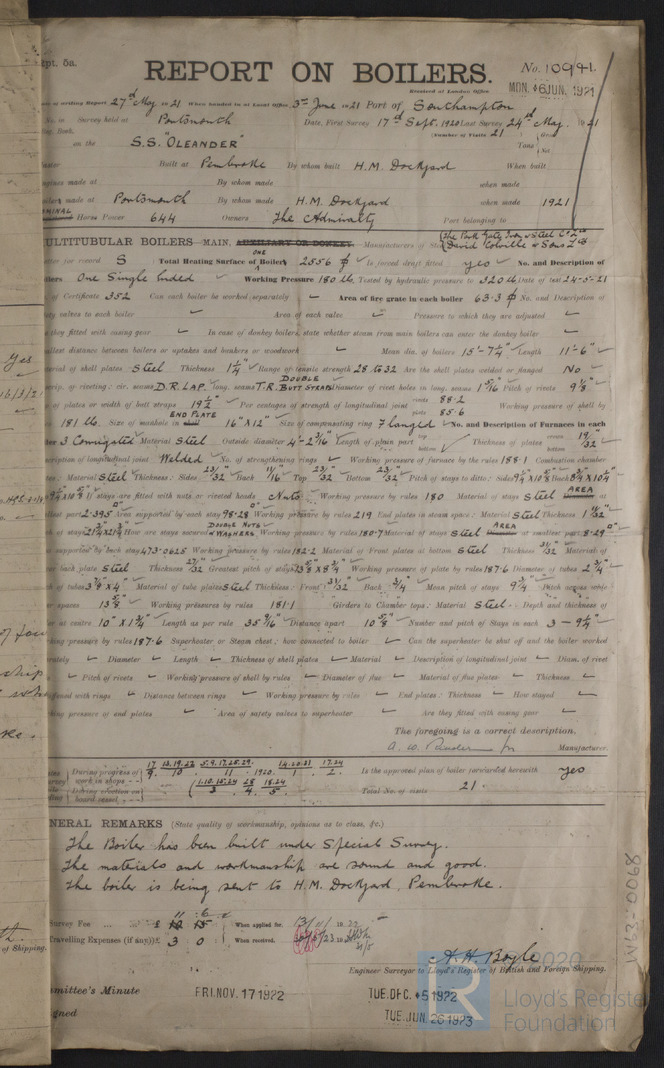 ept. 5a.
REPORT ON BOILERS.
No. 10941.
Received at London Office MON. 6 JUN. 1921
of writing Report 27th May 1921 When handed in at Local Office 3rd June 1921 Port of Southampton
No. in Survey held at Portsmouth Date, First Survey 17th Sept. 1920 Last Survey 24th May. 1921
Book. (Number of Visits 21)
on the S.S. "OLEANDER" Tons
Built at Pembroke By whom built H.M. Dockyard When built
Engines made at By whom made when made
Boilers made at Portsmouth By whom made H.M. Dockyard when made 1921
NOMINAL Horse Power 644 Owners The Admiralty Port belonging to
MULTITUBULAR BOILERS—MAIN, AUXILIARY OR DONKEY.—Manufacturers of Steel The Park Gate Iron & Steel Co Ltd David Colville & Sons Ltd
for record S Total Heating Surface of Boilers ONE 2556 Is forced draft fitted yes No. and Description of
Boilers One Single Ended Working Pressure 180 lb Tested by hydraulic pressure to 320 lb Date of test 24-5-21
of Certificate 352 Can each boiler be worked separately Area of fire grate in each boiler 63.3 No. and Description of
safety valves to each boiler Area of each valve Pressure to which they are adjusted
they fitted with easing gear In case of donkey boilers, state whether steam from main boilers can enter the donkey boiler
Smallest distance between boilers or uptakes and bunkers or woodwork Mean dia. of boilers 15'-7¼" Length 11'-6"
Material of shell plates Steel Thickness 1¼" Range of tensile strength 28 to 32 Are the shell plates welded or flanged No
Descrip. of riveting: cir. seams D.R. LAP. long. seams T.R. DOUBLE BUTT STRAP Diameter of rivet holes in long. seams 1 5/16 Pitch of rivets 9 1/8"
of plates or width of butt straps 19½" Per centages of strength of longitudinal joint rivets 88.2 plate 85.6 Working pressure of shell by
181 lb. Size of manhole in shell END PLATE 16" x 12" Size of compensating ring flanged No. and Description of Furnaces in each
boiler 3 Corrugated Material Steel Outside diameter 4'-2 3/16" Length of plain part top bottom Thickness of plates crown bottom 19/32"
Description of longitudinal joint Welded No. of strengthening rings Working pressure of furnace by the rules 188.1 Combustion chamber
plates: Material Steel Thickness: Sides 23/32" Back 11/16" Top 23/32" Bottom 23/32" Pitch of stays to ditto: Sides
If stays are fitted with nuts or riveted heads Nuts Working pressure by rules 180 Material of stays Steel AREA at
smallest part 2.395 Area supported by each stay 98.28 Working pressure by rules 219 End plates in steam space: Material Steel Thickness 1 1/32"
of stays How are stays secured DOUBLE NUTS & WASHERS Working pressure by rules 180.7 Material of stays Steel AREA at smallest part 8.29
supported by each stay 473.0625 Working pressure by rules 182.2 Material of Front plates at bottom Steel Thickness 31/32 Material of
back plate Steel Thickness 27/32" Greatest pitch of stays Working pressure of plate by rules 187.6 Diameter of tubes 2¾"
of tubes 3 7/8" x 4" Material of tube plates Steel Thickness: Front 31/32" Back ¾" Mean pitch of stays 9¾" Pitch across wide
spaces 13 5/8" Working pressures by rules 181.1 Girders to Chamber tops: Material Steel. Depth and thickness of
at centre 10" x 1¾" Length as per rule 35 9/16" Distance apart 10 5/8" Number and pitch of Stays in each 3 – 9¼"
Working pressure by rules 187.6 Superheater or Steam chest; how connected to boiler Can the superheater be shut off and the boiler worked
separately Diameter Length Thickness of shell plates Material Description of longitudinal joint Diam. of rivet
Pitch of rivets Working pressure of shell by rules Diameter of flue Material of flue plates Thickness
stiffened with rings Distance between rings Working pressure by rules End plates: Thickness How stayed
Working pressure of end plates Area of safety valves to superheater Are they fitted with easing gear
The foregoing is a correct description,
Manufacturer.
During progress of work in shops
During erection on board vessel
Is the approved plan of boiler forwarded herewith yes
Total No. of visits 21.
GENERAL REMARKS (State quality of workmanship, opinions as to class, &c.)
The Boiler has been built under Special Survey.
The materials and workmanship are sound and good.
The boiler is being sent to H.M. Dockyard, Pembroke.
Survey Fee ... £ 11 : 6 When applied for,
Travelling Expenses (if any) £ 3 : 0 When received,
A. H. Boyle
Engineer Surveyor to Lloyd's Register of British and Foreign Shipping.
Committee's Minute FRI. NOV. 17 1922 TUE. DEC. 5 1922
TUE. JUN. 26 1923
W93-0068
© 2020
Lloyd's Register
Foundation
of Shipping.